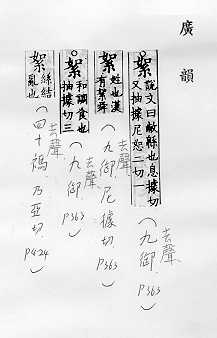 廣韻
絮 說文曰敝緜也息據切又抽據尼恕二切一
（去聲 九御 P363）
絮 姓也漢有絮舜
（去聲 九御 尼據切 P363）
絮 和調食也抽據切三
（去聲 九御 P363）
絮 絲結亂也
（去聲 四十禡 乃亞切 P424）